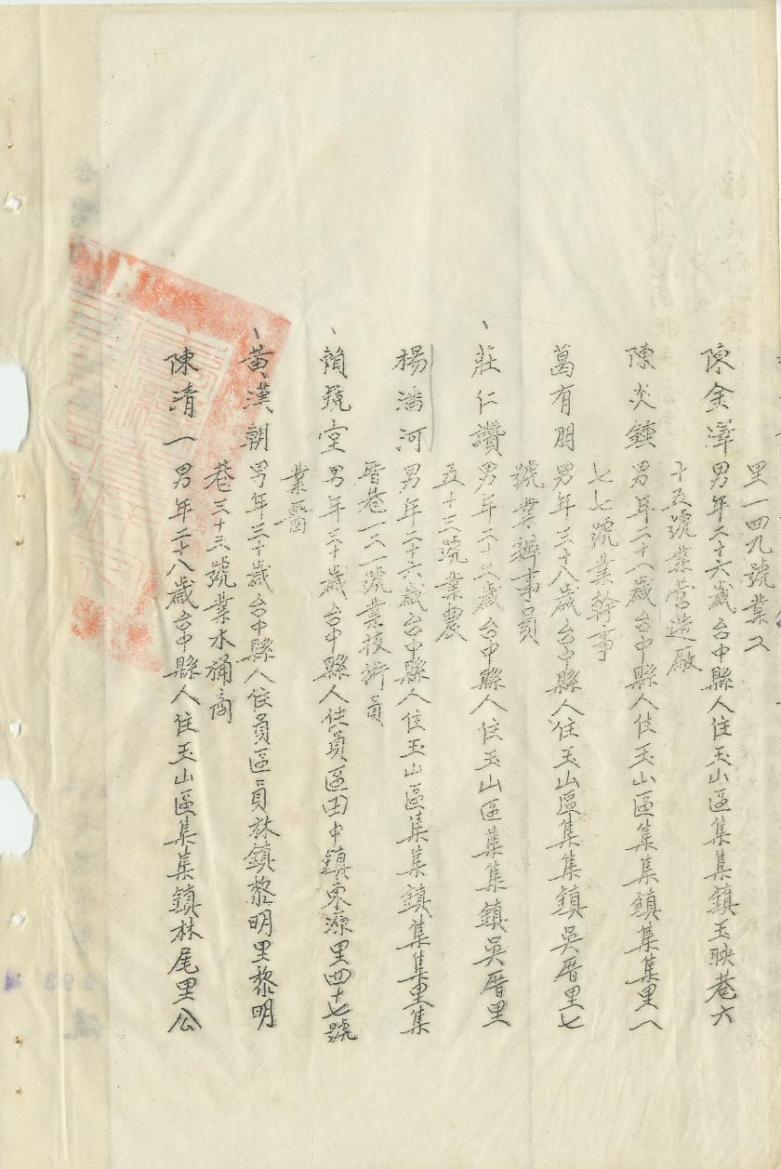 里一四九號業工
陳金澤男年二十六歲台中縣人住玉山區集集鎮玉映巷六
十五號業營造廠
陳炎鎮男年二十八歲台中縣人住玉山區集集鎮集集里八
七七號業幹事
葛有朋男年三十八歲台中縣人住玉山區集集鎮吳厝里七
號業辦事員
莊仁讚男年二十二歲台中縣人住玉山區集集鎮吳厝里
五十三號業農
楊潘河男年二十六歲台中縣人住玉山區集集鎮集集里集
厝巷一二一號業技術員
賴號堂男年三十歲台中縣人住員區田中鎮東源里四十七號
業醫
黃漢朝男年三十歲台中縣人住員區員林鎮黎明里黎明
巷三十三號業水桶商
陳清一男年二十八歲台中縣人住玉山區集集鎮林尾里公